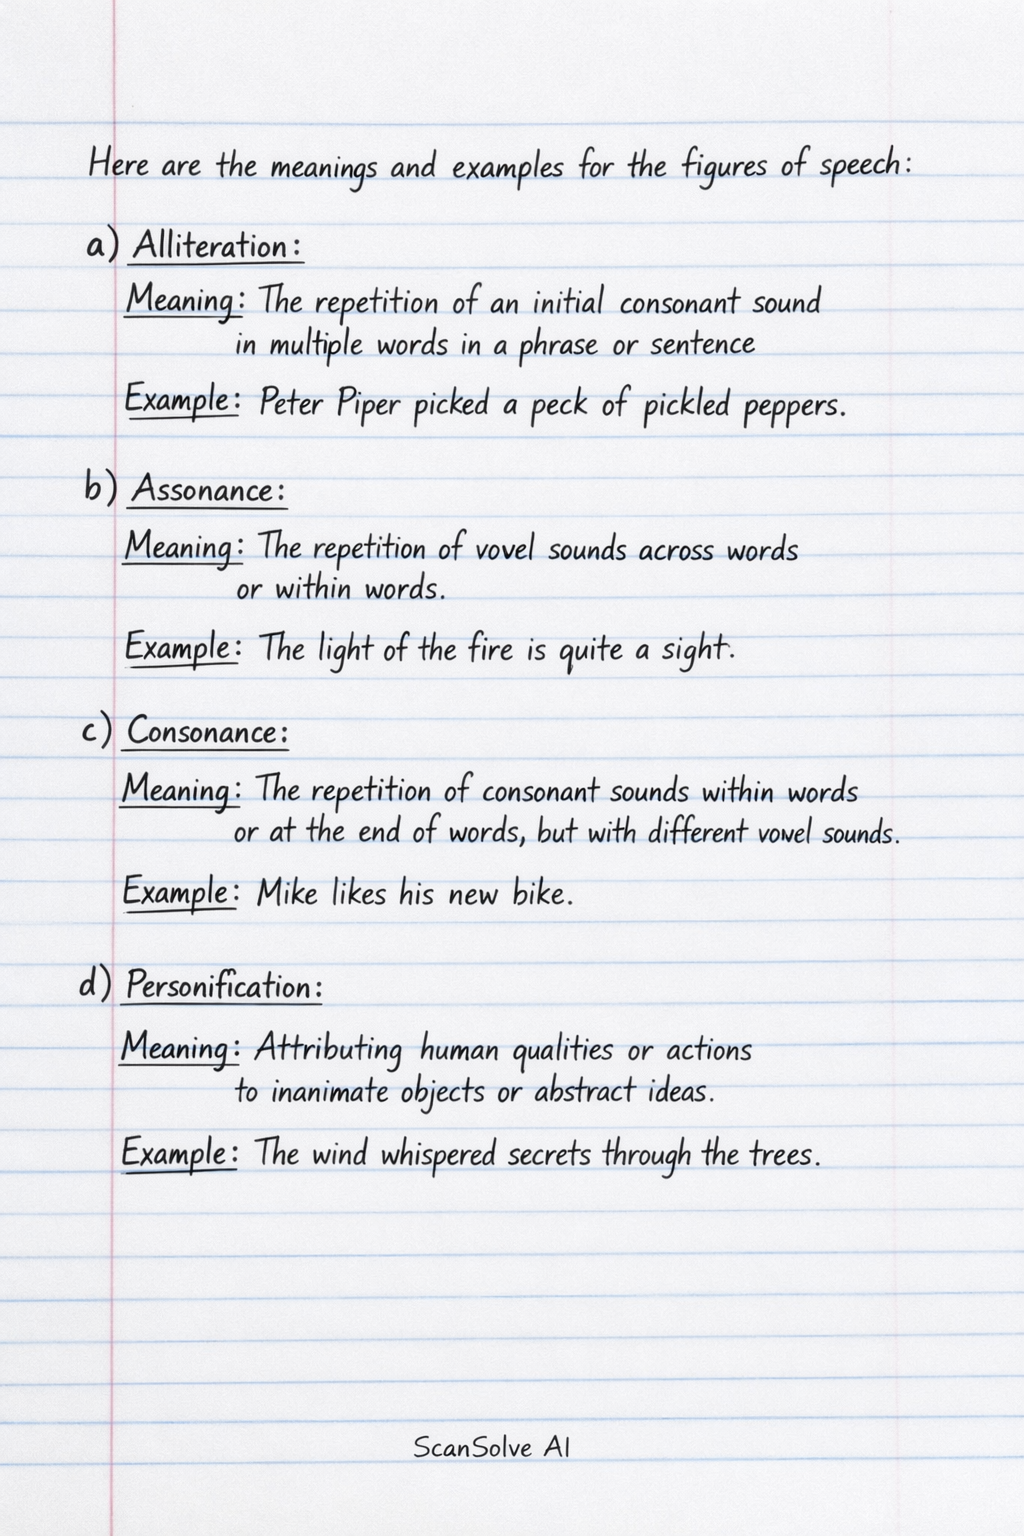 Here are the meanings and examples for the figures of speech:
a) Alliteration:
Meaning: The repetition of an initial consonant sound
in multiple words in a phrase or sentence
Example: Peter Piper picked a peck of pickled peppers.
b) Assonance:
Meaning: The repetition of vovel sounds across words
or within words.
Example: The light of the fire is quite a sight.
c) Consonance:
Meaning: The repetition of consonant sounds within words
or at the end of words, but with different vowel sounds.
Example: Mike likes his new bike.
d) Personification:
Meaning: Attributing human qualities or actions
to inanimate objects or abstract ideas.
Example: The wind whispered secrets through the trees.
ScanSolve AI